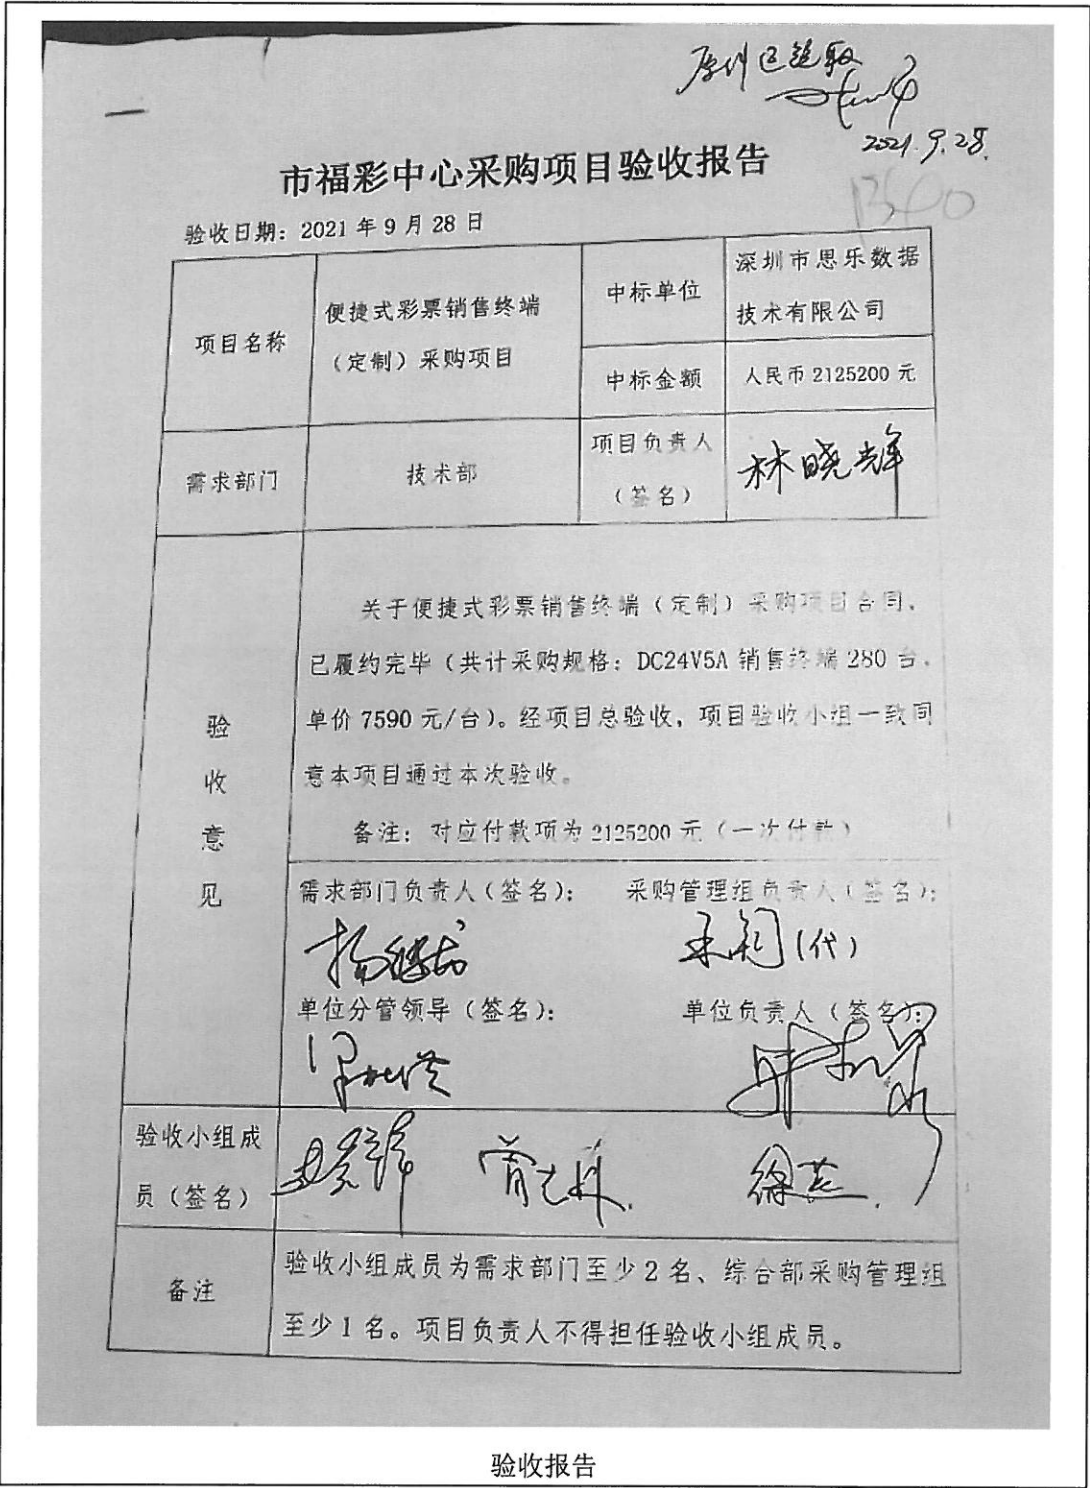 2021.9.28.
市福彩中心采购项目验收报告
验收日期：2021 年 9 月 28 日
项目名称
便捷式彩票销售终端
（定制）采购项目
中标单位
深圳市思乐数据
技术有限公司
中标金额
人民币 2125200 元
需求部门
技术部
项目负责人
（签名）
林晓辉
验
收
意
见
关于便捷式彩票销售终端（定制）采购项目合同，
已履约完毕（共计采购规格：DC24V5A 销售终端 280 台，
单价 7590 元/台）。经项目总验收，项目验收小组一致同
意本项目通过本次验收。
备注：对应付款项为 2125200 元（一次付款）
需求部门负责人（签名）：
采购管理组负责人（签名）：
（代）
单位分管领导（签名）：
单位负责人（签名）：
验收小组成
员（签名）
徐燕
备注
验收小组成员为需求部门至少 2 名、综合部采购管理组
至少 1 名。项目负责人不得担任验收小组成员。
验收报告